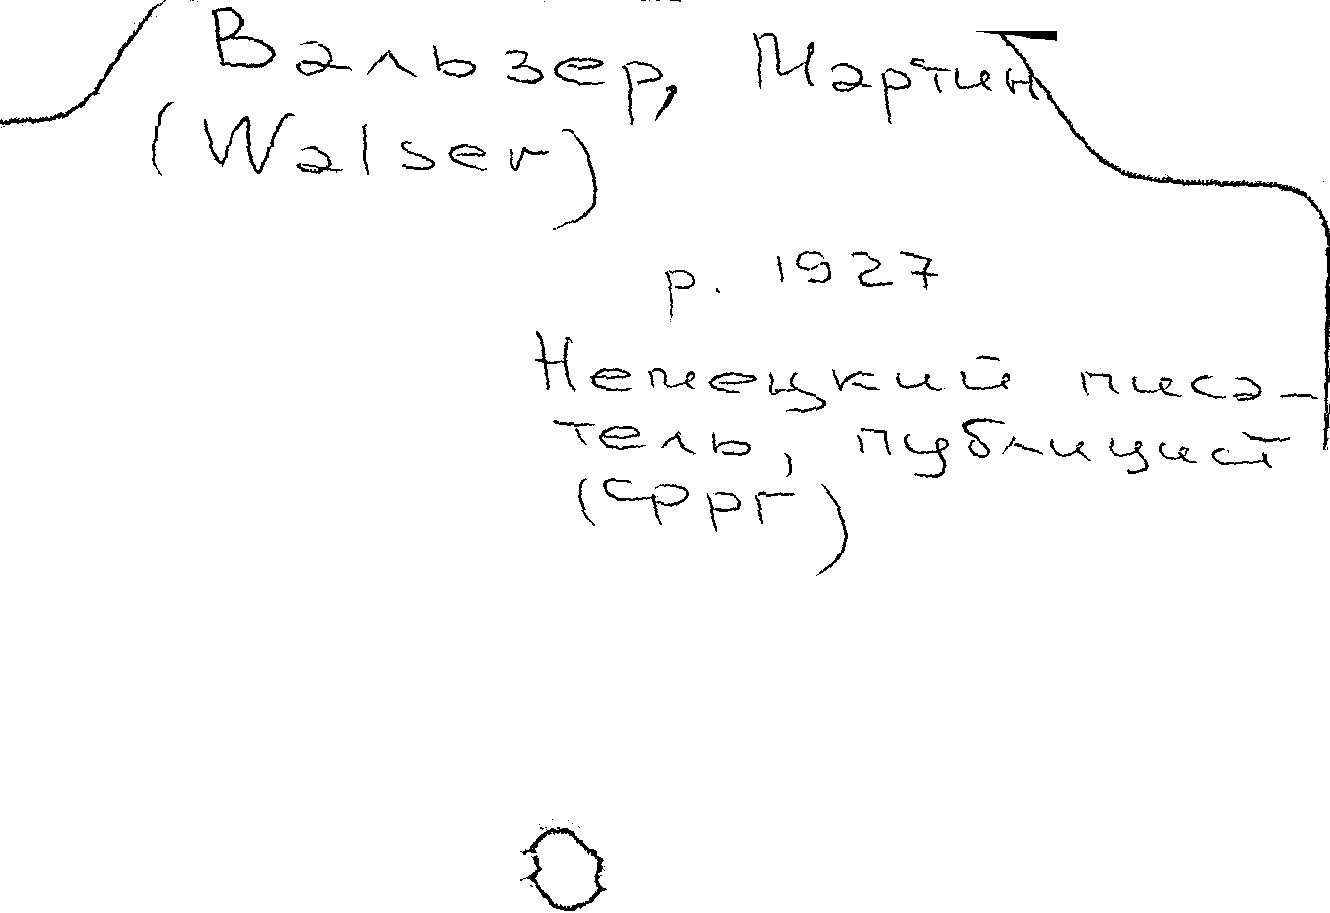 Вальзер, Мартин
(Walser)
р. 1927
Немецкий писа-
тель, публицист
(ФРГ)